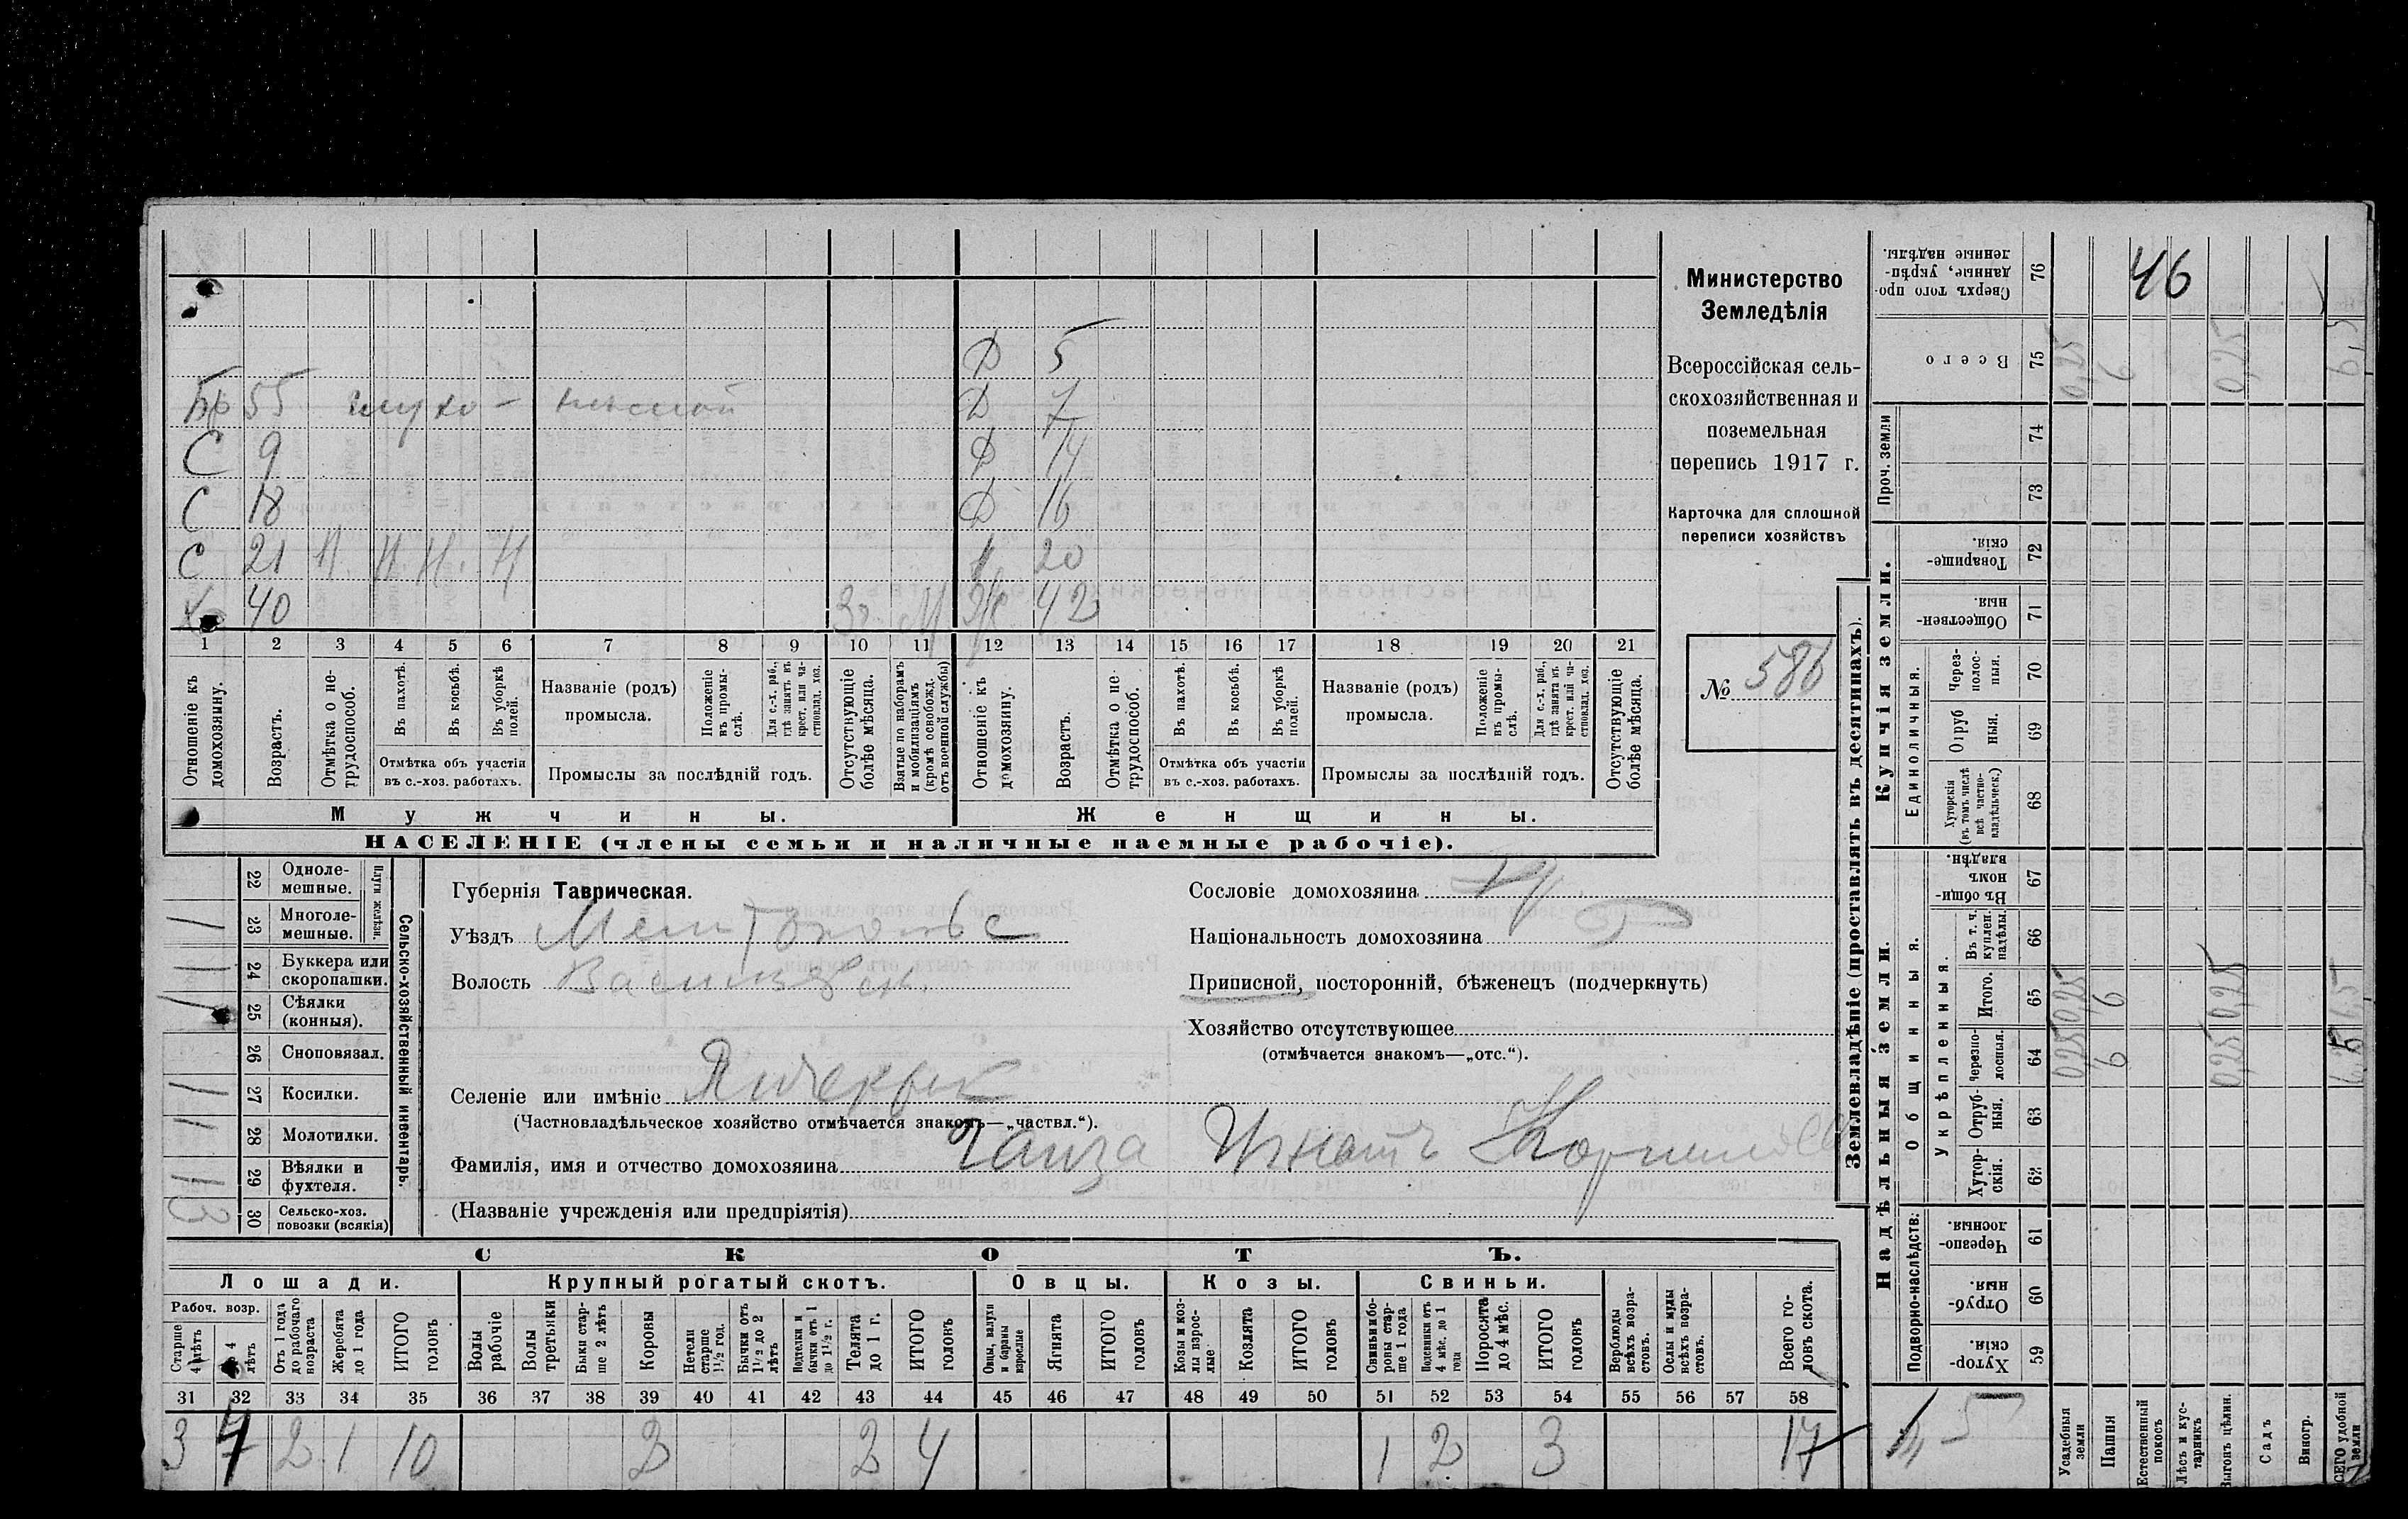 Д 5
Бр 55 глухо - немой Д 7
С 9 Д 14
С 18 Д 16
С 21 Н. Н. Н. Н 20
Х 40 Зг. М Ж 42
1 2 3 4 5 6 7 8 9 10 11 12 13 14 15 16 17 18 19 20 21
Отношеніе къ домохозяину.
Возрастъ.
Отмѣтка о нетрудоспособ.
Въ пахотѣ.
Въ косьбѣ.
Въ уборкѣ полей.
Отмѣтка объ участіи
въ с.-хоз. работахъ.
Названіе (родъ)
промысла.
Положеніе въ промыслѣ.
Для с.-х. раб., гдѣ занятъ въ крест. или частновлад. хоз.
Промыслы за послѣдній годъ.
Отсутствующіе болѣе мѣсяца.
Взятые по наборамъ и мобилизаціямъ (кромѣ освобожд. отъ военной службы)
Отношеніе къ домохозяину.
Возрастъ.
Отмѣтка о нетрудоспособ.
Въ пахотѣ.
Въ косьбѣ.
Въ уборкѣ полей.
Отмѣтка объ участіи
въ с.-хоз. работахъ.
Названіе (родъ)
промысла.
Положеніе въ промыслѣ.
Для с.-х. раб., гдѣ занята въ крест. или частновлад. хоз.
Промыслы за послѣдній годъ.
Отсутствующіе болѣе мѣсяца.
Мужчины.
Женщины.
НАСЕЛЕНІЕ (члены семьи и наличные наемные рабочіе).
Министерство
Земледѣлія
Всероссійская сель-
скохозяйственная и
поземельная
перепись 1917 г.
Карточка для сплошной
переписи хозяйствъ
№ 586
22 Одноле-
мешные.
1 23 Многоле-
мешные.
Плуги желѣзн.
1 24 Буккера или
скоропашки.
1 25 Сѣялки
(конныя).
26 Сноповязал.
1 27 Косилки.
1 28 Молотилки.
1 29 Вѣялки и
фухтеля.
3 30 Сельско-хоз.
повозки (всякія)
Сельско-хозяйственный инвентарь.
Губернія Таврическая.
Уѣздъ
Волость Васильевск.
Селеніе или имѣніе
(Частновладѣльческое хозяйство отмѣчается знакомъ—„частвл.“).
Фамилія, имя и отчество домохозяина Игнатъ
(Названіе учрежденія или предпріятія)
Сословіе домохозяина
Національность домохозяина
Приписной, посторонній, бѣженецъ (подчеркнуть)
Хозяйство отсутствующее
(отмѣчается знакомъ—„отс.“).
СКОТЪ.
Лошади. Крупный рогатый скотъ. Овцы. Козы. Свиньи.
Рабоч. возр.
Старше 4 лѣтъ
До 4 лѣтъ
Отъ 1 года до рабочаго возраста
Жеребята до 1 года
ИТОГО головъ
Волы рабочіе
Волы третьяки
Быки старше 2 лѣтъ
Коровы
Нетели старше 1½ год.
Бычки отъ 1½ до 2 лѣтъ
Подтелки и бычки отъ 1 до 1½ г.
Телята до 1 г.
ИТОГО головъ
Овцы, валухи и бараны взрослые
Ягнята
ИТОГО головъ
Козы и козлы взрослые
Козлята
ИТОГО головъ
Свиньи и боровы старше 1 года
Подсвинки отъ 4 мѣс. до 1 года
Поросята до 4 мѣс.
ИТОГО головъ
Верблюды всѣхъ возрастовъ.
Ослы и мулы всѣхъ возрастовъ.
Всего головъ скота.
31 32 33 34 35 36 37 38 39 40 41 42 43 44 45 46 47 48 49 50 51 52 53 54 55 56 57 58
3 4 2 1 10 2 2 4 1 2 3 17
Землевладѣніе (проставлять въ десятинахъ).
Сверхъ того проданные, укрѣпленные надѣлы. 76 46
Всего 75 0,25 6 0,25 6,5
Проч. земли 74
73
Купчія земли.
Товарищескія. 72
Общественныя. 71
Единоличныя.
Черезполосныя. 70
Отрубныя. 69
Хуторскія (въ томъ числѣ всѣ частновладѣльческ.) 68
Надѣльныя земли.
Въ общинномъ владѣн. 67
Общинныя.
Укрѣпленныя.
Въ т. ч. куплен. надѣлы. 66
Итого. 65 0,25 6 0,25 6,5
Черезполосныя. 64 0,25 6 0,25
Отрубныя. 63
Хуторскія. 62
Подворно-наслѣдств.
Черезполосныя. 61
Отрубныя. 60
Хуторскія 59
Усадебныя земли
Пашня
Естественный покосъ
Лѣсъ и кустарникъ
Выгонъ цѣлин.
Садъ
Виногр.
ВСЕГО удобной земли